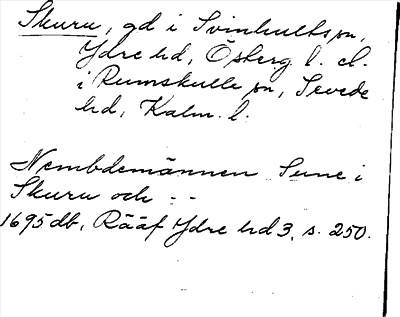 Skuru, gd i Svinhults sn,
Ydre hd, Österg. l. el.
i Rumskulla sn, Sevede
hd, Kalm. l.
Nembdemännen Sune i
Skuru och - -
1695 db, Rääf Ydre hd 3, s. 250.